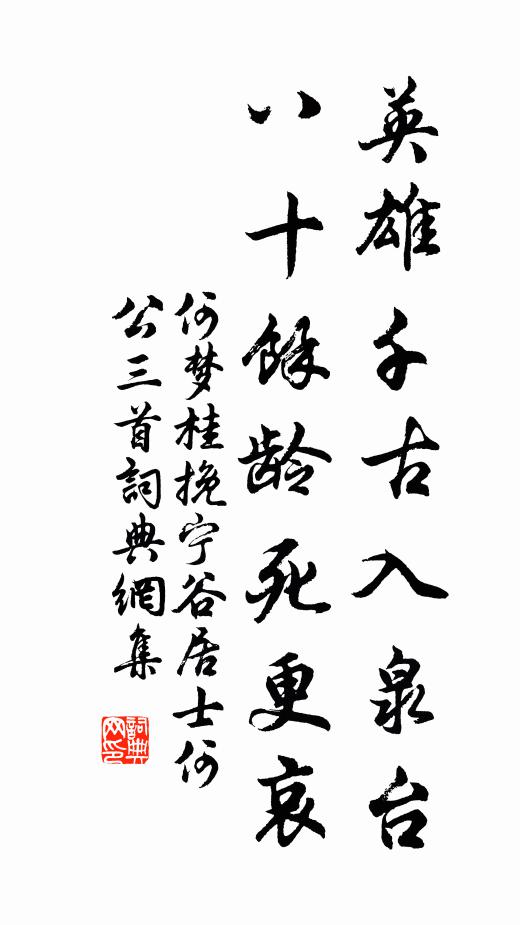 英雄千古入泉台
八十餘龄死更哀
何梦桂挽宁谷居士何
公三首詞典網集
詞典
网印